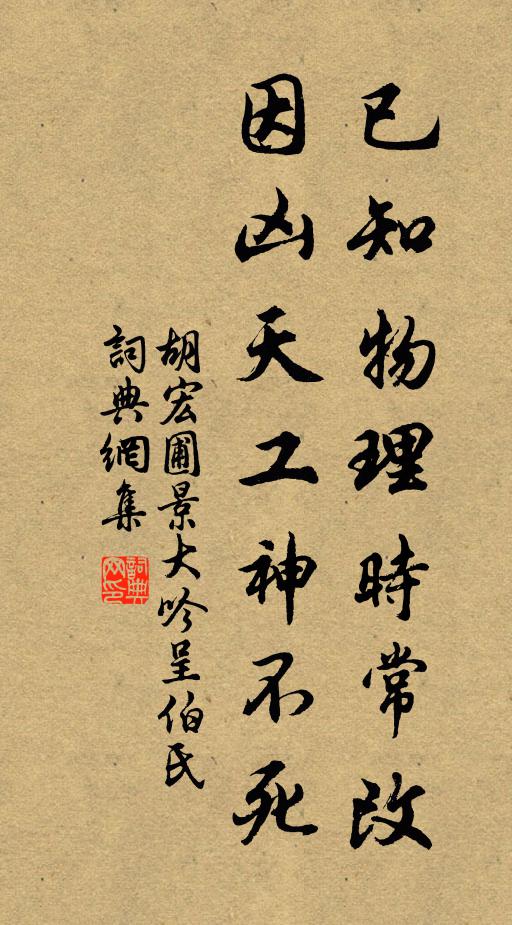 已知物理時常改
因凶天工神不死
胡宏圃景大吟呈伯氏
詞典網集
詞典
网印